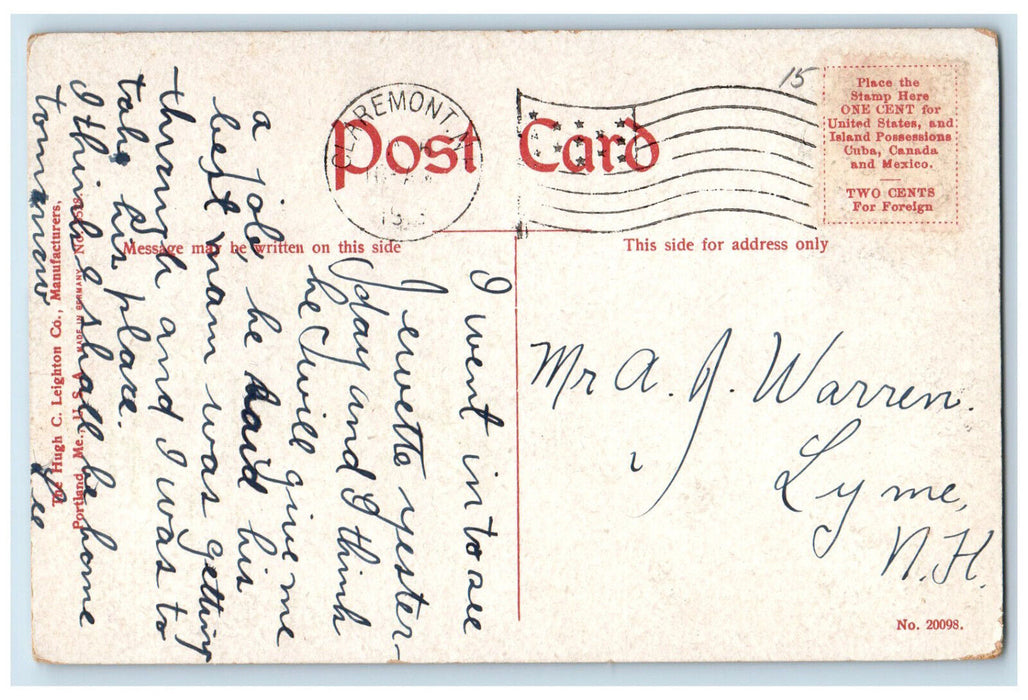 15
Place the
Stamp Here
ONE CENT for
United States, and
Island Possessions
Cuba, Canada
and Mexico.
TWO CENTS
For Foreign
CLAREMONT
Post Card
Message may be written on this side
This side for address only
I went in to see
Jewette yester-
day and I think
he will give me
a job, he said his
best man was getting
through and I was to
take his place.
I think I shall be home
tomorrow
Lee
Mr A. J. Warren.
Lyme,
N.H.
The Hugh C. Leighton Co., Manufacturers,
Portland, Me., U.S.A. MADE IN GERMANY No.
No. 20098.